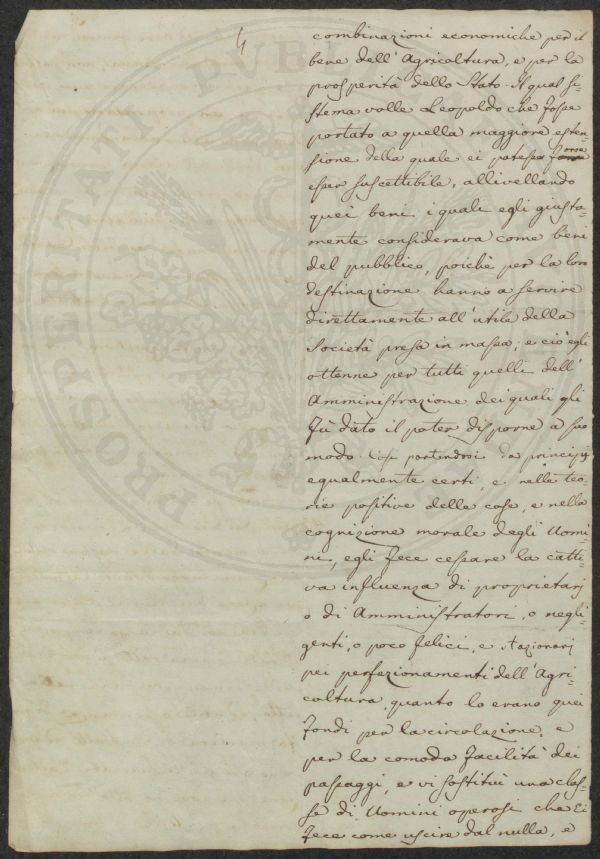 4
combinazioni economiche per il
bene dell'Agricoltura, e per la
prosperità dello Stato. Il qual si-
stema volle Leopoldo che fosse
portato a quella maggiore esten-
sione della quale ei potesse
esser suscettibile, allivellando
quei beni i quali egli giusta-
mente considerava come beni
del pubblico, poichè per la loro
destinazione hanno a servire
direttamente all'utile della
Società presa in massa; e ciò egli
ottenne per tutti quelli dell'
Amministrazione dei quali gli
fù dato il poter disporne a suo
modo. Così partendosi da principj
egualmente certi, e nelle teo-
rie positive delle cose, e nella
cognizione morale degli Uomi-
ni, egli fece cessare la catti-
va influenza di proprietarj
o di Amministratori, o negli-
genti, o poco felici, e stazionarj
pei perfezionamenti dell'Agri-
coltura, quanto lo erano quei
fondi per la circolazione, e
per la comoda facilità dei
passaggi, e vi sostituì una clas-
se di Uomini operosi che Ei
fece come uscire dal nulla, e
PROSPERITATI PUBLI